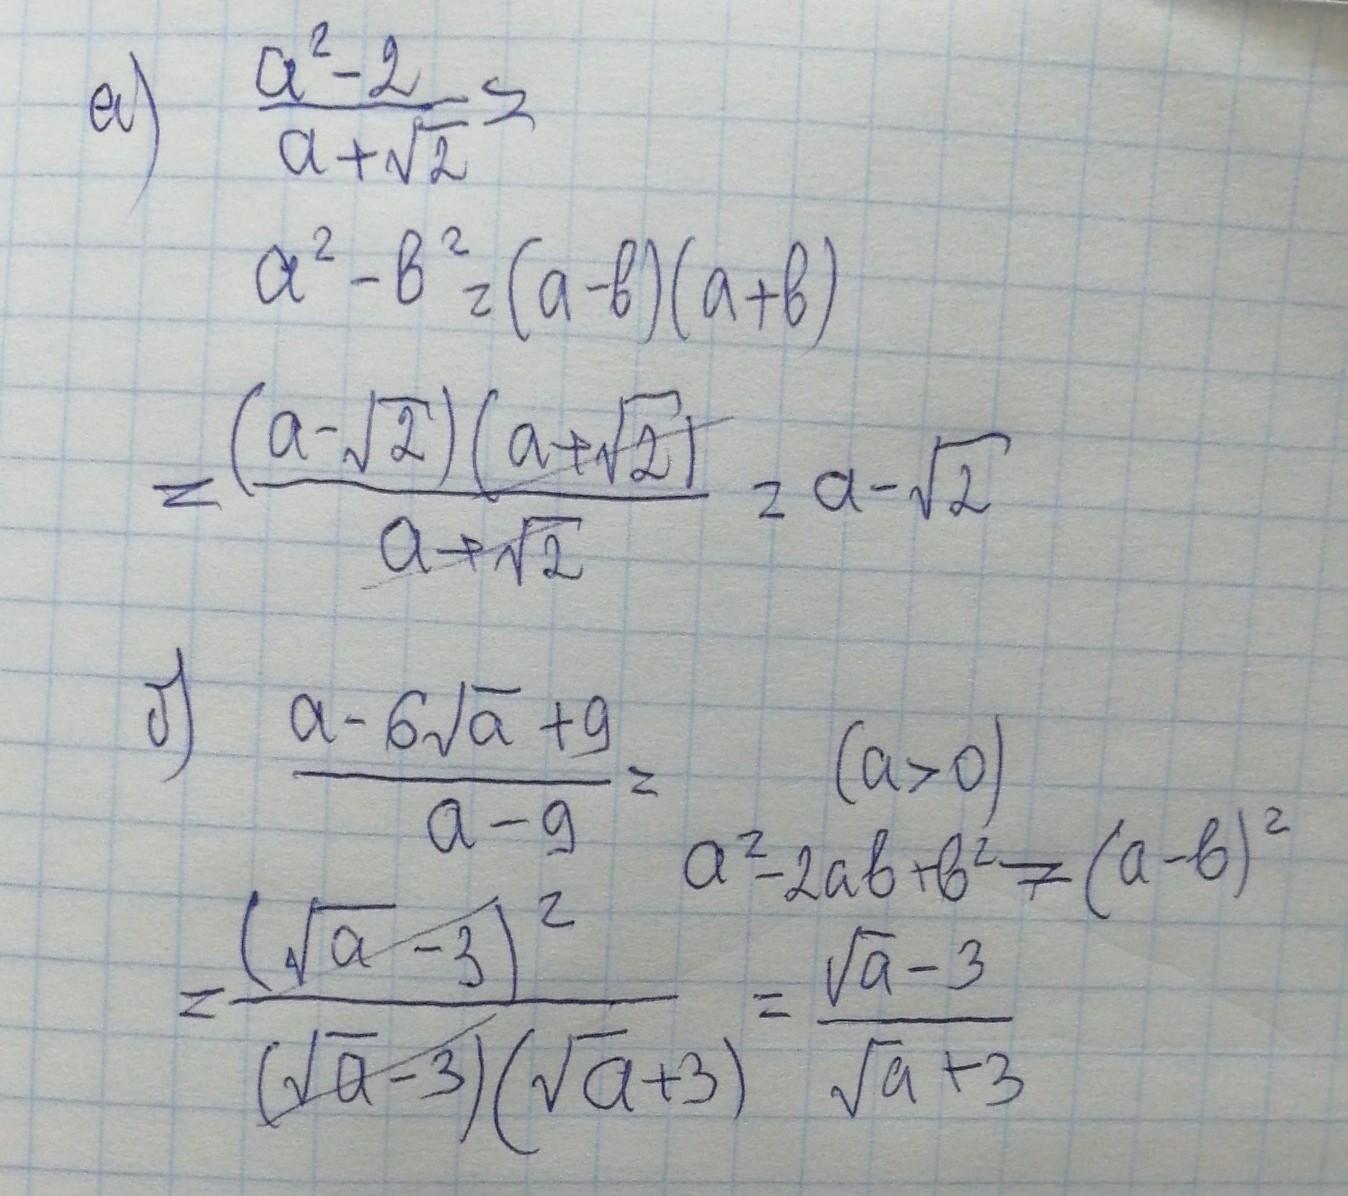 а) (a² - 2)/(a + √2) =
a² - b² = (a - b)(a + b)
= ((a - √2)(a + √2))/(a + √2) = a - √2
б) (a - 6√a + 9)/(a - 9) = (a > 0)
a² - 2ab + b² = (a - b)²
= (√a - 3)²/((√a - 3)(√a + 3)) = (√a - 3)/(√a + 3)